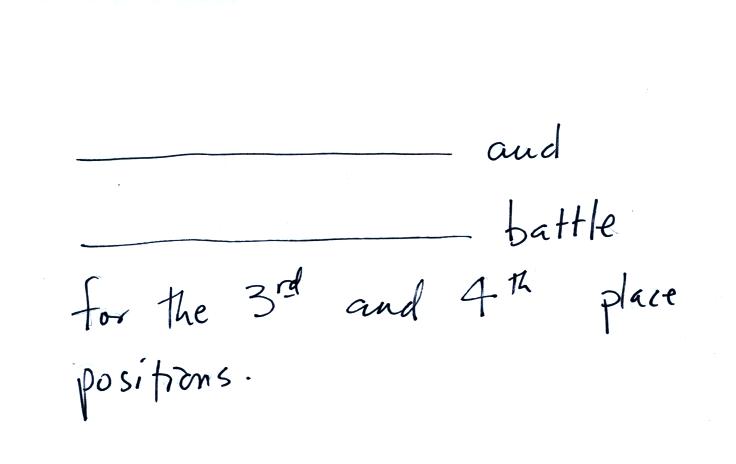 ____________________ and
____________________ battle
for the 3rd and 4th place
positions.